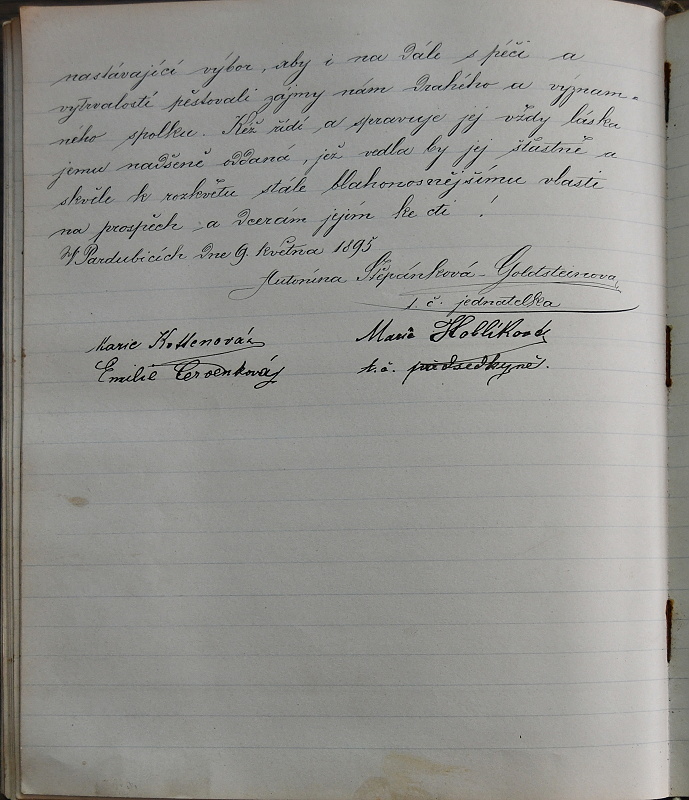 nastávající výbor, aby i na dále s péčí a
vytrvalostí pěstovali zájmy nám drahého a význam-
ného spolku. Kéž řídí a spravuje jej vždy láska
jemu nadšeně oddaná, jež vedla by jej šťastně a
skvěle k rozkvětu stále blahonosnějšímu vlasti
na prospěch a dcerám jejím ke cti!
V Pardubicích dne 9. května 1895
Antonína Štěpánková-Goldsteinova,
t. č. jednatelka
Marie Kottenová Marie Hoblíková
Emilie Červenková t. č. předsedkyně.